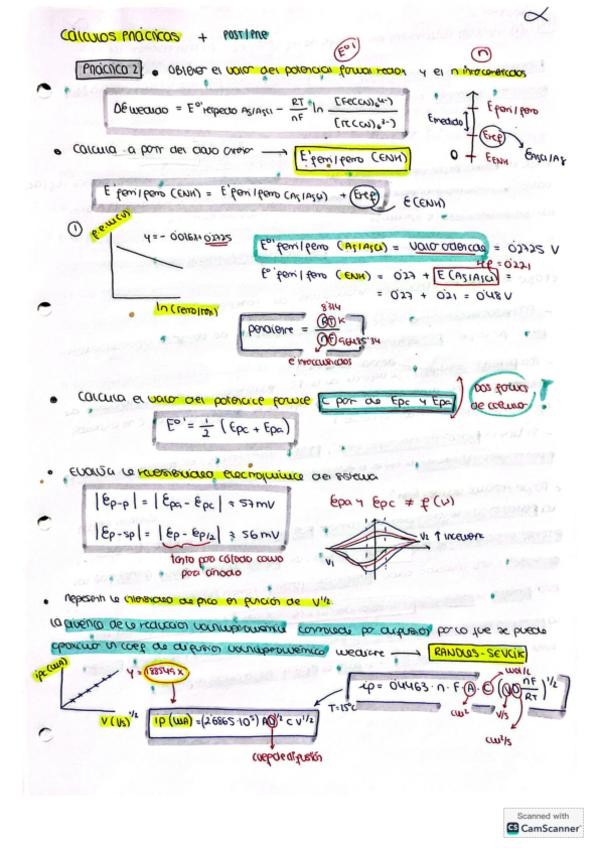 α
CÁLCULOS PRÁCTICOS + POST/PRE
E°'
n
PRÁCTICA 2 • Obtener el valor del potencial formal redox y el n intercambiados
ΔE medido = E°' respecto Ag/AgCl − RT/nF ln [Fe(CN)₆⁴⁻]/[Fe(CN)₆³⁻]
E ferri/ferro
E medido
Eref
E Ag/AgCl
0 EENH
• Calcula a partir del dato anterior → E°' ferri/ferro (ENH)
E°' ferri/ferro (ENH) = E°' ferri/ferro (Ag/AgCl) + Eref
E(ENH)
①
y = -0'0161x + 0'2725
ln (cred/cox)
E°' ferri/ferro (Ag/AgCl) = valor ordenada = 0'2725 V
E°' ferri/ferro (ENH) = 0'27 + E (Ag/AgCl) =
= 0'27 + 0'21 = 0'48 V
8'314
pendiente = RT K / nF
e⁻ intercambiados
• Calcula el valor del potencial formal a partir de Epc y Epa
Dos formas de calcularlo !
E°' = 1/2 (Epc + Epa)
• Evalúa la reversibilidad electroquímica del sistema
|Ep-p| = |Epa − Epc| = 57 mV
|Ep-sp| = |Ep − Ep/2| = 56 mV
tanto por cátodo como por ánodo
Epa y Epc ≠ f(v)
V₁
V₂ ↑ velocidad
• Representa la intensidad de pico en función de V^1/2
La cinética de la reducción voltamperométrica controlada por difusión por lo que se puede
aproximar un coef de difusión voltamperométrico mediante → RANDLES-SEVCIK
ipc (uA)
y = 188545x
V (V/s)^1/2
ip (uA) = (2'6865·10⁵) A D^1/2 C V^1/2
coef de difusión
T = 25°C
ip = 0'4463 · n · F · A · C (VD nF/RT)^1/2
cm²
V/s
cm²/s
Scanned with
CS CamScanner